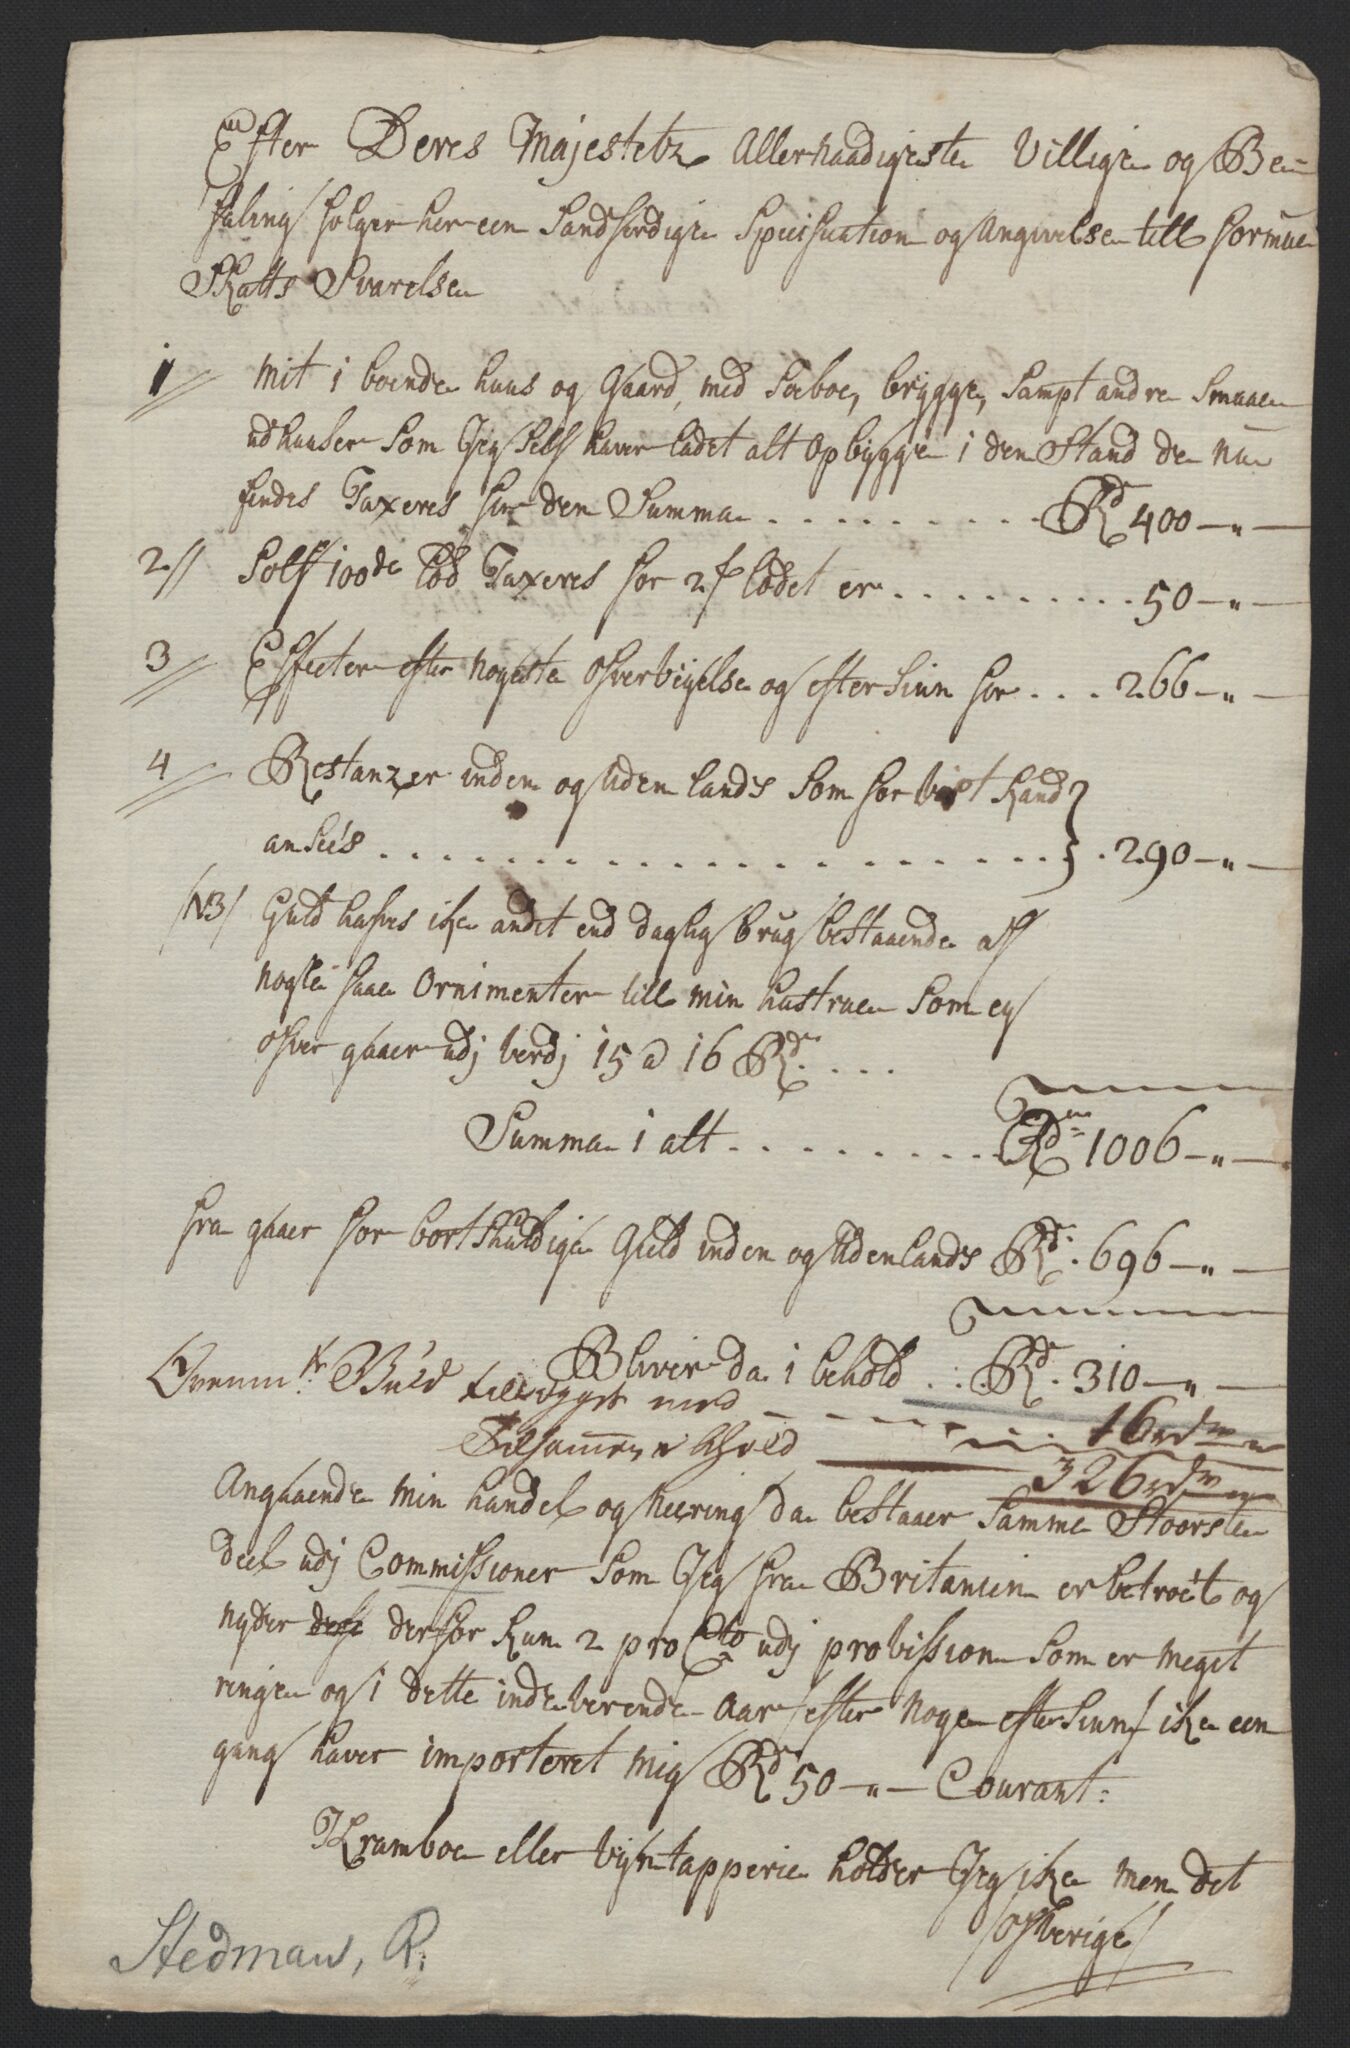 Efter Deres Majestetz Allernaadigeste Villige og Be-
faling følger her een Sandferdige Specification og Angivelse till formue
Skatts Svarelse
1// Mit i boende huus og Gaard, med Søeboe, brygge, Sampt andre Smaae
udhuuser Som Jeg Self haver ladet alt Opbygge i den Stand de nu
findes Taxeres for den Summa . . . . . . . . . Rd 400 – " –
2// Sølf 100de lod Taxeres for 2 f lodet er . . . . . . . . . 50 – " –
3// Effecter efter nøyeste Ofverveyelse og efter Siun for . . . 266 – " –
4// Restanzer inden og uden lands Som for vist Kand
ansees . . . . . . . . . . . . . . . . . . . 290 – " –
/NB/ Guld hafves ike andet end daglig brug bestaaende af
nogle faae Ornimenter till min hustrue Som ey
ofver gaaer udj verdj 15 a 16 Rdr . . . .
Summa i alt . . . . . . . . . Rdr 1006 – " –
fra gaaer for bortskyldige Gield inden og udenlands Rdr. 696 – " –
Bliver da i behold . . . Rd. 310 – " –
Ovenmte: Guld tillegget med – – – – – 16 rdr
Tilsammen Ahold 326 rdr
Angaaende min handel og Neering da bestaaer Samme Stoorste
deel udj Commissioner Som Jeg fra Britanien er betroet og
nyder derfor Kun 2 pro Cto udj provission Som er meget
ringe og i dette indeverende Aar /efter nøye efter Siun/ ike een
gang haver importeret mig Rdr 50 – " – Courant:
Kramboe eller Vijntapperie holder Jeg ike men det
/ofverige/
Stedman, R: